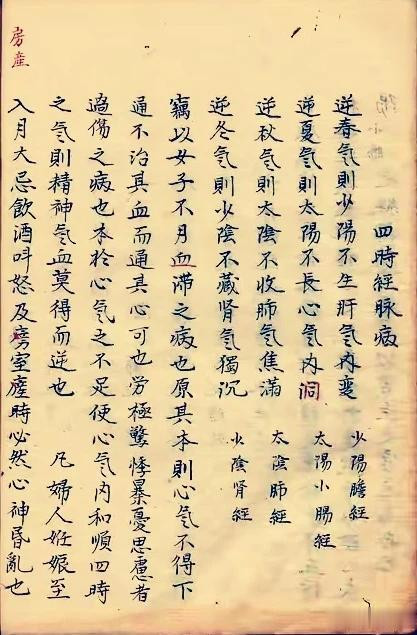 四時經脉病
逆春氣則少陽不生肝氣內变 少陽膽經
逆夏氣則太陽不長心氣內洞 太陽小腸經
逆秋氣則太陰不收肺氣焦滿 太陰肺經
逆冬氣則少陰不藏肾氣獨沉 少陰肾經
竊以女子不月血滯之病也原其本則心氣不得下
通不治其血而通其心可也勞極驚悸暴憂思慮者
過傷之病也本於心氣之不足使心氣內和順四時
之氣則精神氣血莫得而逆也 凡婦人姙娠至
入月大忌飲酒呌怒及房室產時必然心神昏亂也
房産